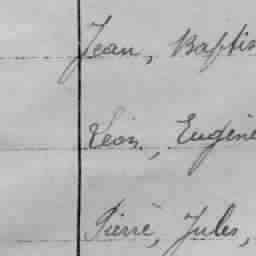 Jean, Baptis
Léon, Eugène
Pierre, Jules,